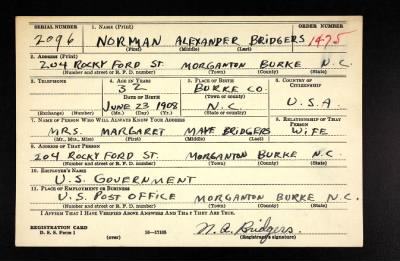 SERIAL NUMBER 1. NAME (Print) ORDER NUMBER
2096 NORMAN ALEXANDER BRIDGERS 1475
(First) (Middle) (Last)
2. ADDRESS (Print)
204 ROCKY FORD ST. MORGANTON BURKE N.C.
(Number and street or R. F. D. number) (Town) (County) (State)
3. TELEPHONE 4. AGE IN YEARS 5. PLACE OF BIRTH 6. COUNTRY OF CITIZENSHIP
32 BURKE CO.
DATE OF BIRTH (Town or county)
JUNE 23 1908 N.C. U.S.A.
(Exchange) (Number) (Mo.) (Day) (Yr.) (State or country)
7. NAME OF PERSON WHO WILL ALWAYS KNOW YOUR ADDRESS 8. RELATIONSHIP OF THAT PERSON
MRS. MARGARET MAYE BRIDGERS WIFE
(Mr., Mrs., Miss) (First) (Middle) (Last)
9. ADDRESS OF THAT PERSON
204 ROCKY FORD ST. MORGANTON BURKE N.C.
(Number and street or R. F. D. number) (Town) (County) (State)
10. EMPLOYER'S NAME
U.S. GOVERNMENT
11. PLACE OF EMPLOYMENT OR BUSINESS
U.S. POST OFFICE MORGANTON BURKE N.C.
(Number and street or R. F. D. number) (Town) (County) (State)
I AFFIRM THAT I HAVE VERIFIED ABOVE ANSWERS AND THAT THEY ARE TRUE.
REGISTRATION CARD
D. S. S. Form 1 (over) 16—17105 N. A. Bridgers.
(Registrant's signature)